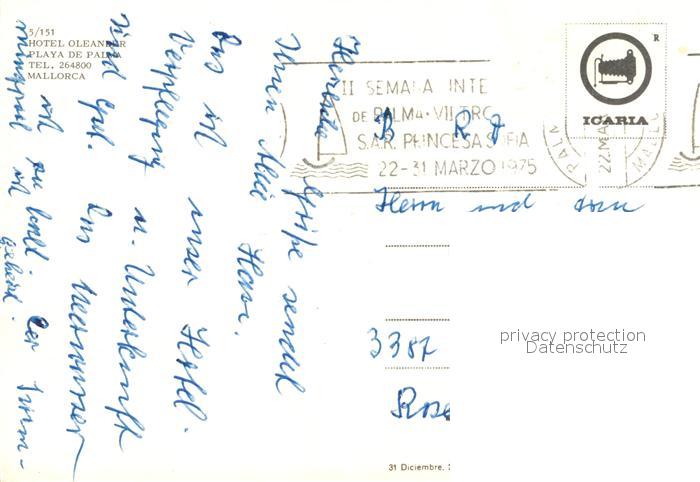 5/151
HOTEL OLEANDER
PLAYA DE PALMA
TEL. 264800
MALLORCA
Herzliche Grüße sendet
Ihnen Alice Ham.
Das ist unser Hotel.
Verpflegung u. Unterkunft
sind gut. Das Meerwasser
ist zu kalt. Der Swim-
mingpool ist geheizt.
II SEMANA INTE
DE PALMA · VII TRO
S.A.R. PRINCESA SOFIA
22-31 MARZO 1975
PALM
22.MA
MALLO
R
ICARIA
B R F
Herrn und Frau
3387
Rose
31 Diciembre, 2
privacy protection
Datenschutz